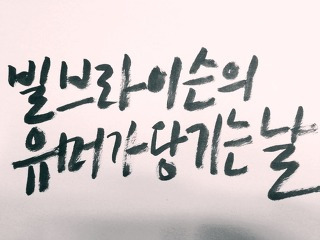 빌브라이슨의
유머가 당기는 날